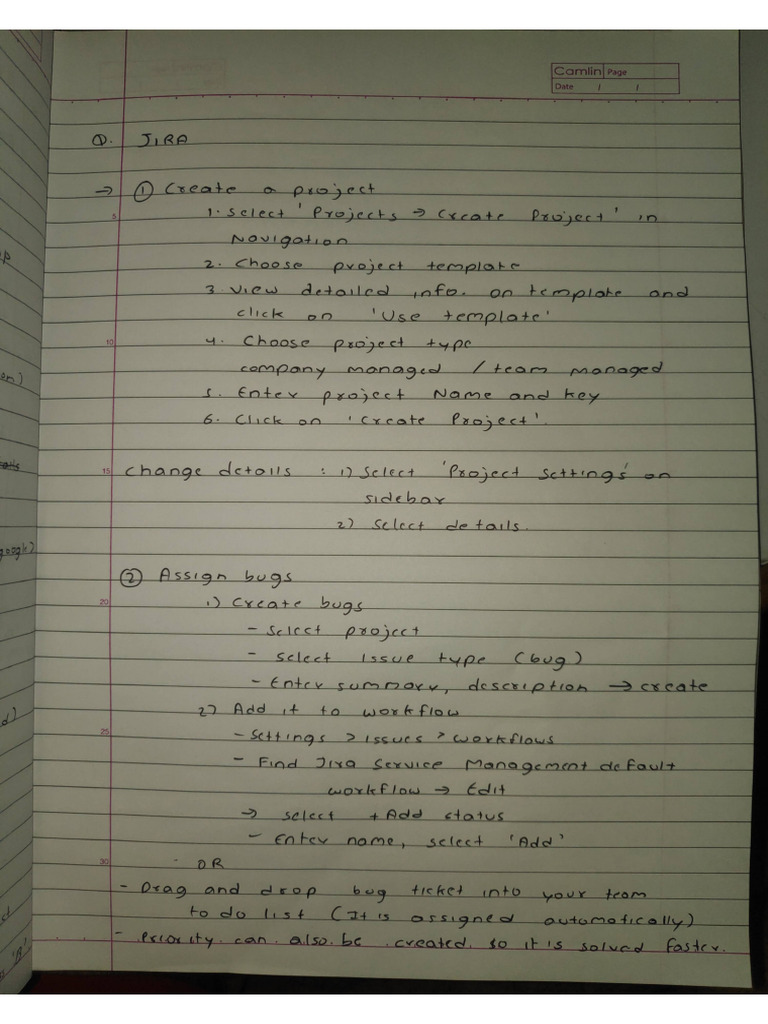 Camlin Page
Date / /
Q. JIRA
→ ① Create a project
1. Select 'Projects → Create Project' in
5
Navigation
2. Choose project template
3. View detailed info. on template and
click on 'Use template'
10
4. Choose project type
company managed / team managed
5. Enter project Name and key
6. Click on 'Create Project'.
15
Change details : 1) Select 'Project Settings' on
sidebar
2) Select details.
② Assign bugs
20
1) Create bugs
- Select project
- Select issue type (bug)
- Enter summary, description → create
2) Add it to workflow
25
- Settings > issues > workflows
- Find Jira Service Management default
workflow → Edit
→ select + Add status
- Enter name, select 'Add'
30
OR
- Drag and drop bug ticket into your team
to do list (It is assigned automatically)
- Priority can also be created, so it is solved faster.
en)
google)
d)
'A'